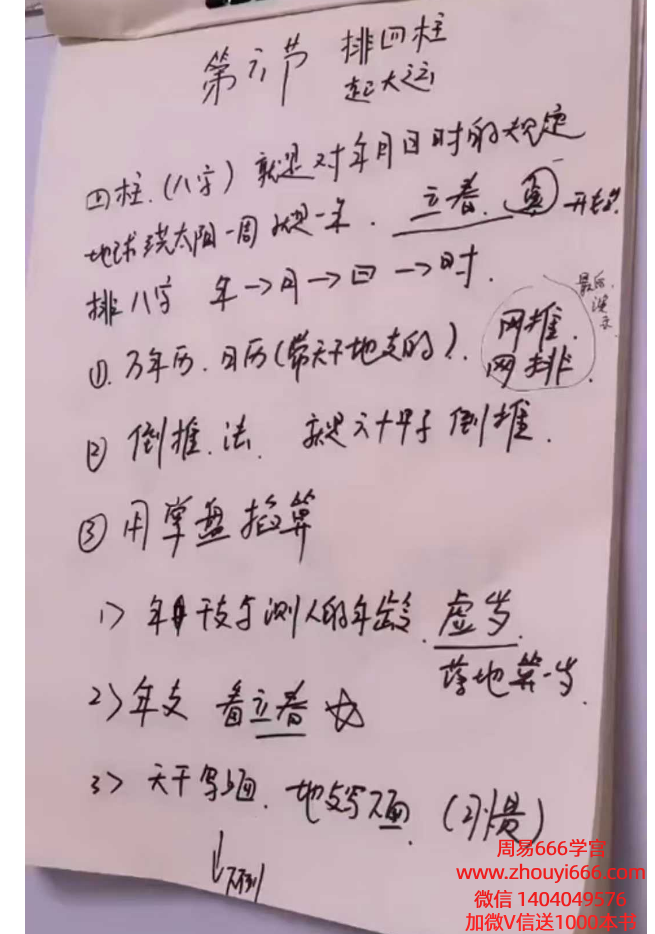 第六节 排四柱
起大运
四柱.(八字) 就是对年月日时的规定
地球绕太阳一周就是一年. 立春. 寅 开始.
排八字 年→月→日→时.
最后
①.万年历.日历(带天干地支的).
网推.
网排.
②倒推.法. 就是六十甲子倒推.
③用掌盘掐算
1>年干支与测人的年龄.虚岁.
落地算一岁.
2>年支 看立春☆
3>天干写上面.地支写下面.(习惯)
↓
周易666学宫
www.zhouyi666.com
微信 1404049576
加微V信送1000本书